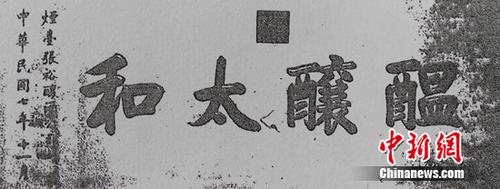 醞釀太和
煙臺張裕釀
中華民國七年十一月
中新网
Chinanews.com